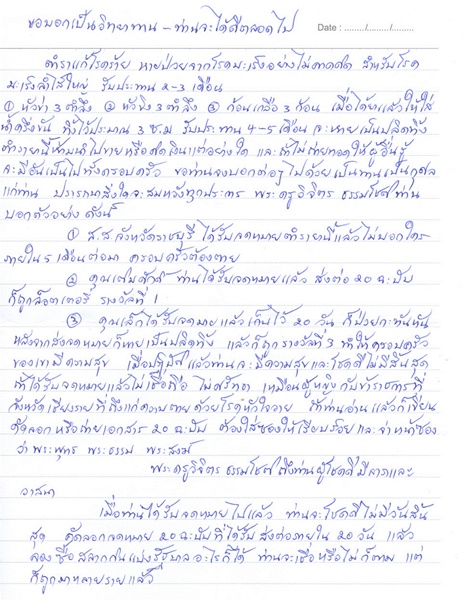 ขอบอกเป็นวิทยาทาน - ท่านจะได้ดีตลอดไป
Date : ......../........./.........
ตำราแก้โรคร้าย หายป่วยจากโรคมะเร็งอย่างไม่คาดคิด สำหรับโรค
มะเร็งลำไส้ใหญ่ รับประทาน 2-3 เดือน
① หัวข่า 3 ตำลึง ② หัวขิง 3 ตำลึง ③ ก้อนเกลือ 3 ก้อน เมื่อได้ยาแล้วให้ใส่
น้ำครึ่งขัน ทิ้งไว้ประมาณ 3 ช.ม รับประทาน 4-5 เดือน จะหายเป็นปลิดทิ้ง
ตำรายานี้ห้ามนำไปขายหรือคิดเงินแต่อย่างใด และถ้าไม่ถ่ายทอดให้ผู้อื่นรู้
จะมีอันเป็นไปทั้งครอบครัว ขอท่านจงบอกต่อๆ ไปด้วยเป็นทานเป็นกุศล
แก่ท่าน ปรารถนาสิ่งใดจะสมหวังทุกประการ พระครูวิจิตร ธรรมโชติ ท่าน
บอกตัวอย่าง ดังนี้
① ส.ส. จังหวัดราชบุรี ได้รับจดหมายตำรายานี้แล้วไม่บอกใคร
ภายใน 5 เดือนต่อมา ครอบครัวต้องตาย
② คุณ ท่านได้รับจดหมายแล้ว ส่งต่อ 20 ฉบับ
ก็ถูกล็อตเตอรี่ รางวัลที่ 1
③ คุณเล็กได้รับจดหมายแล้วเก็บไว้ 20 วัน ก็ป่วยกะทันหัน
หลังจากส่งจดหมายก็หายเป็นปลิดทิ้ง แล้วก็ถูกรางวัลที่ 3 ทำให้ครอบครัว
ของเขามีความสุข เมื่อปฏิบัติแล้วท่านจะมีความสุขและโชคดีไม่มีสิ้นสุด
ถ้าได้รับจดหมายแล้วไม่เชื่อถือ ไม่ศรัทธา เหมือนผู้หญิงกับข้าราชการที่
จังหวัดเชียงรายที่ถึงแก่ความตายด้วยโรคหัวใจวาย ถ้าท่านอ่านแล้วก็เขียน
คัดลอกหรือถ่ายเอกสาร 20 ฉบับ ต้องใส่ซองให้เรียบร้อยและจ่าหน้าซอง
ว่า พระพุทธ พระธรรม พระสงฆ์
พระครูวิจิตร ธรรมโชติ ถึงท่านผู้โชคดีมีลาภและ
วาสนา
เมื่อท่านได้รับจดหมายไปแล้ว ท่านจะโชคดีไม่มีวันสิ้น
สุด คัดลอกจดหมาย 20 ฉบับที่ได้รับ ส่งต่อภายใน 20 วัน แล้ว
ลองซื้อสลากกินแบ่งรัฐบาล อะไรก็ได้ ท่านจะเชื่อหรือไม่ก็ตาม แต่
ก็ถูกมาหลายรายแล้ว